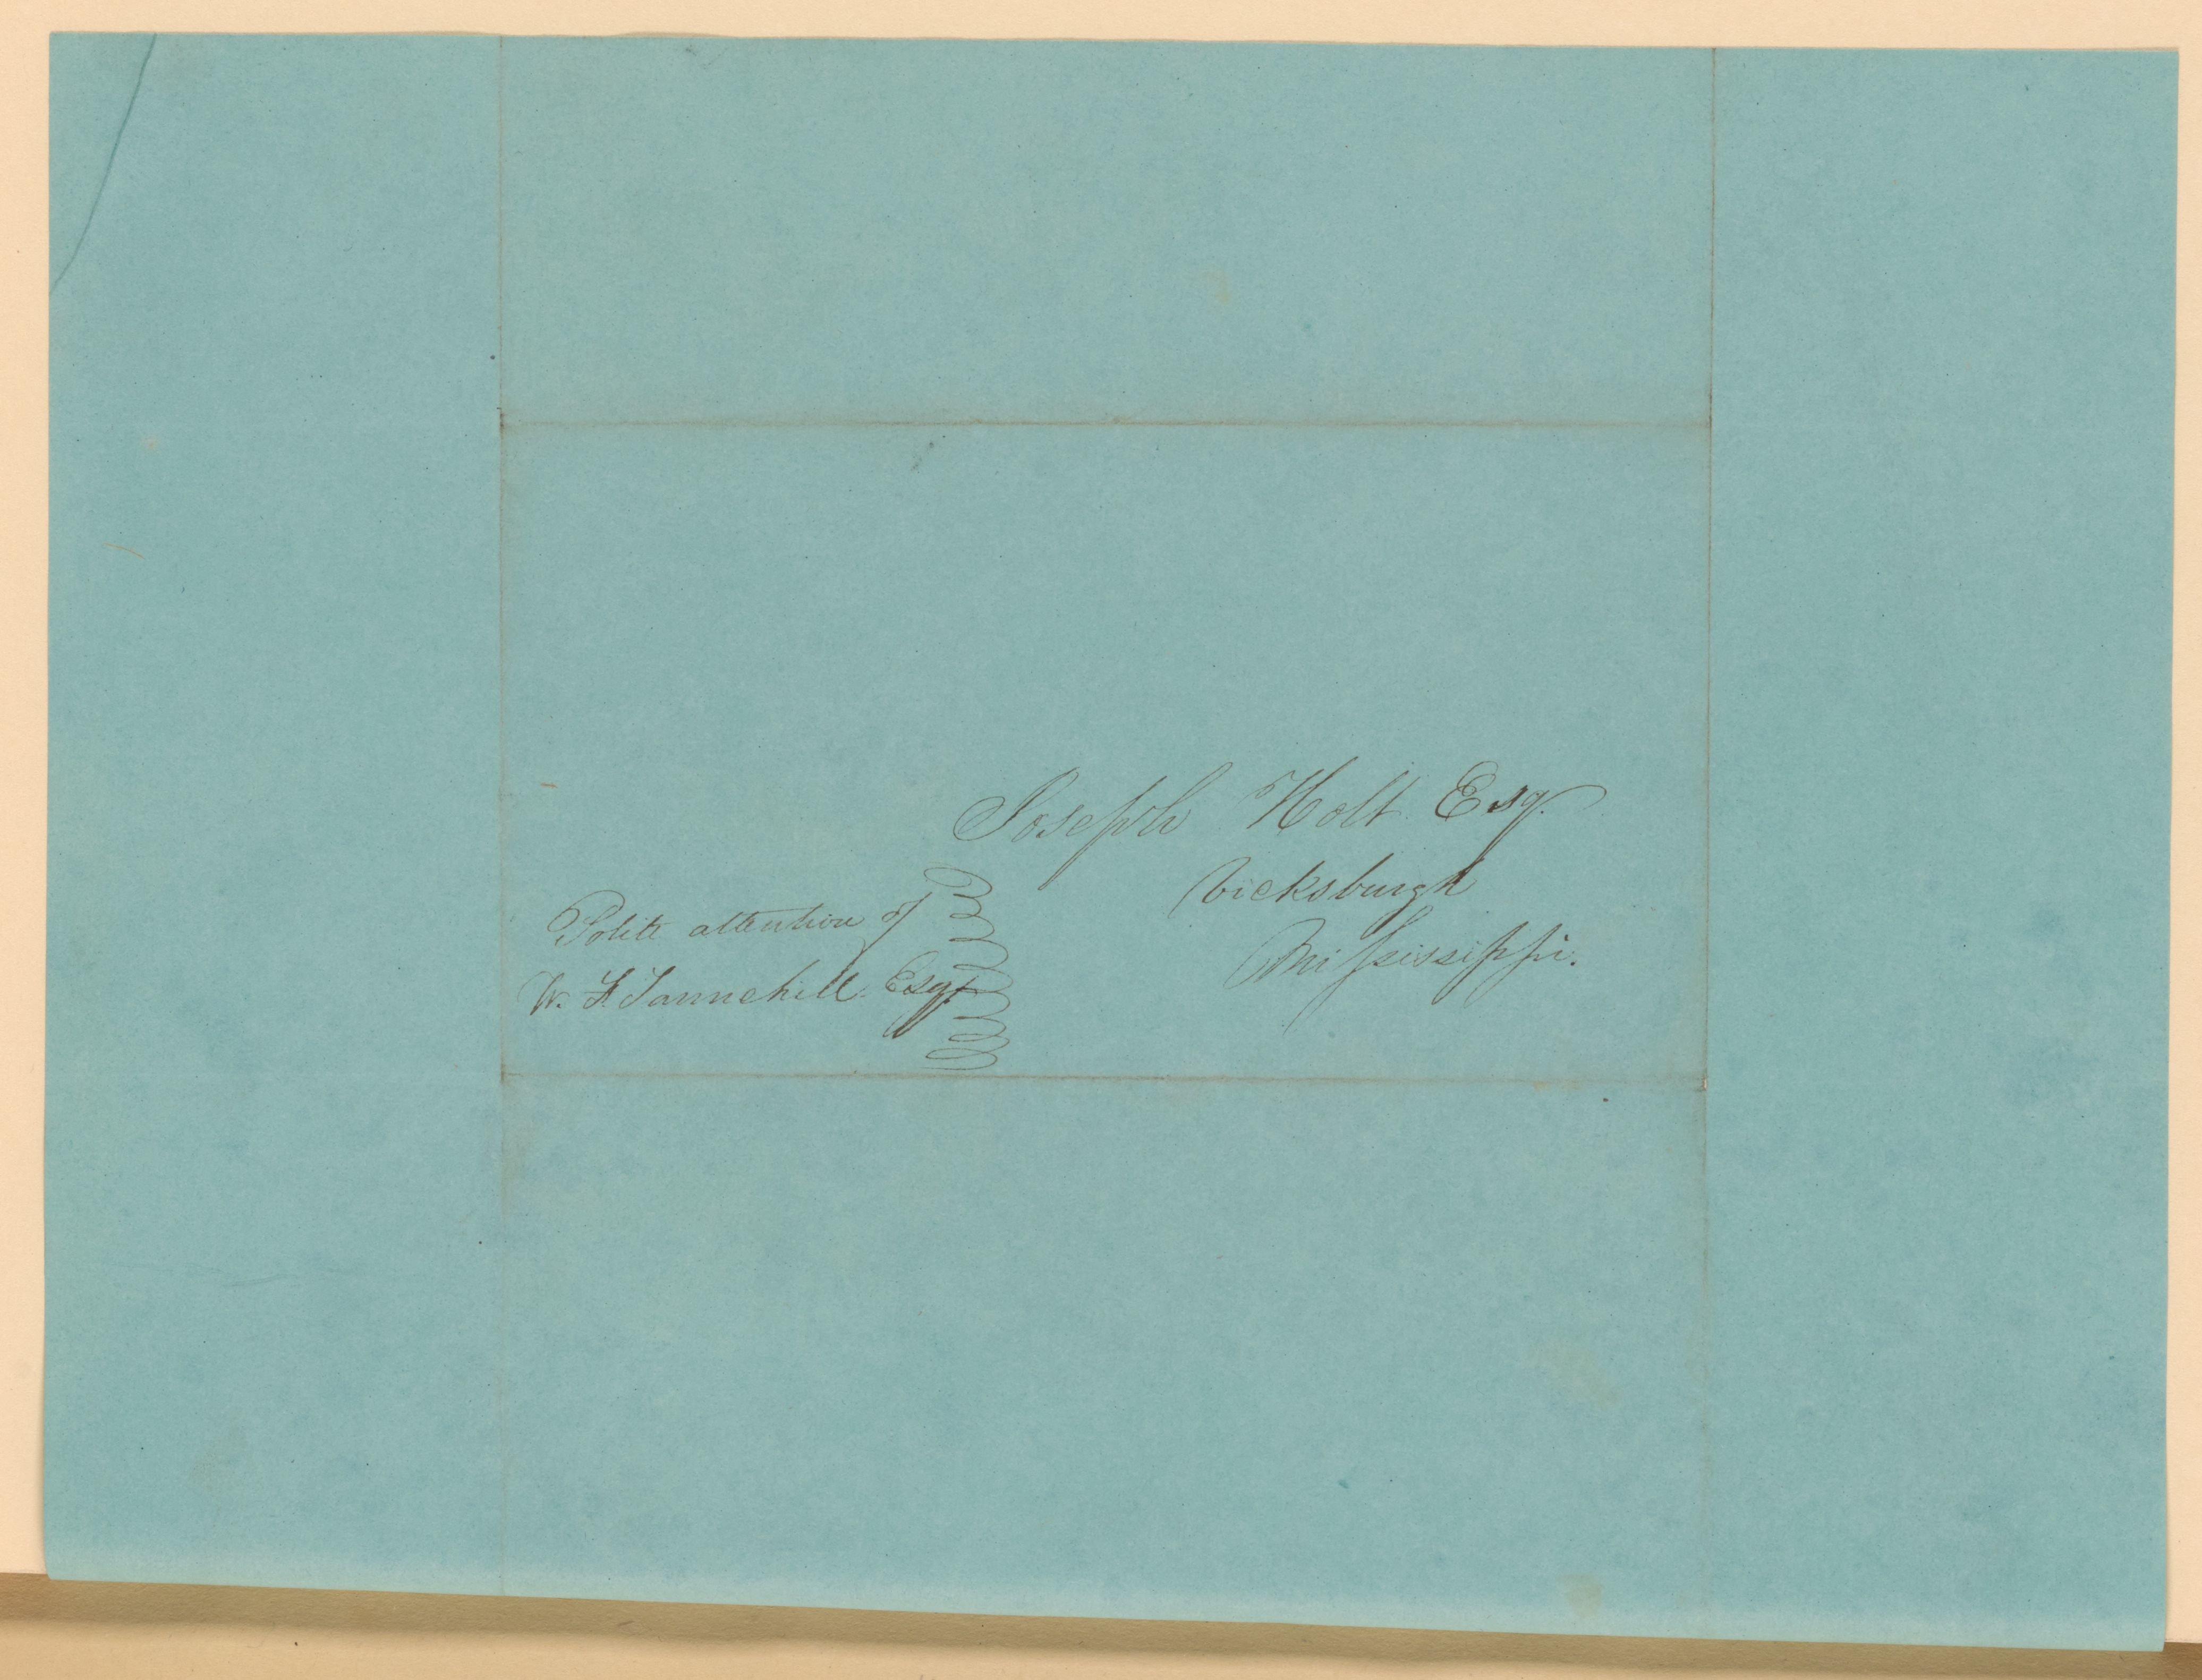 Joseph Holt Esq.
Vicksburgh
Mississippi.
Polite attention of
W. F. Tannehill. Esqr